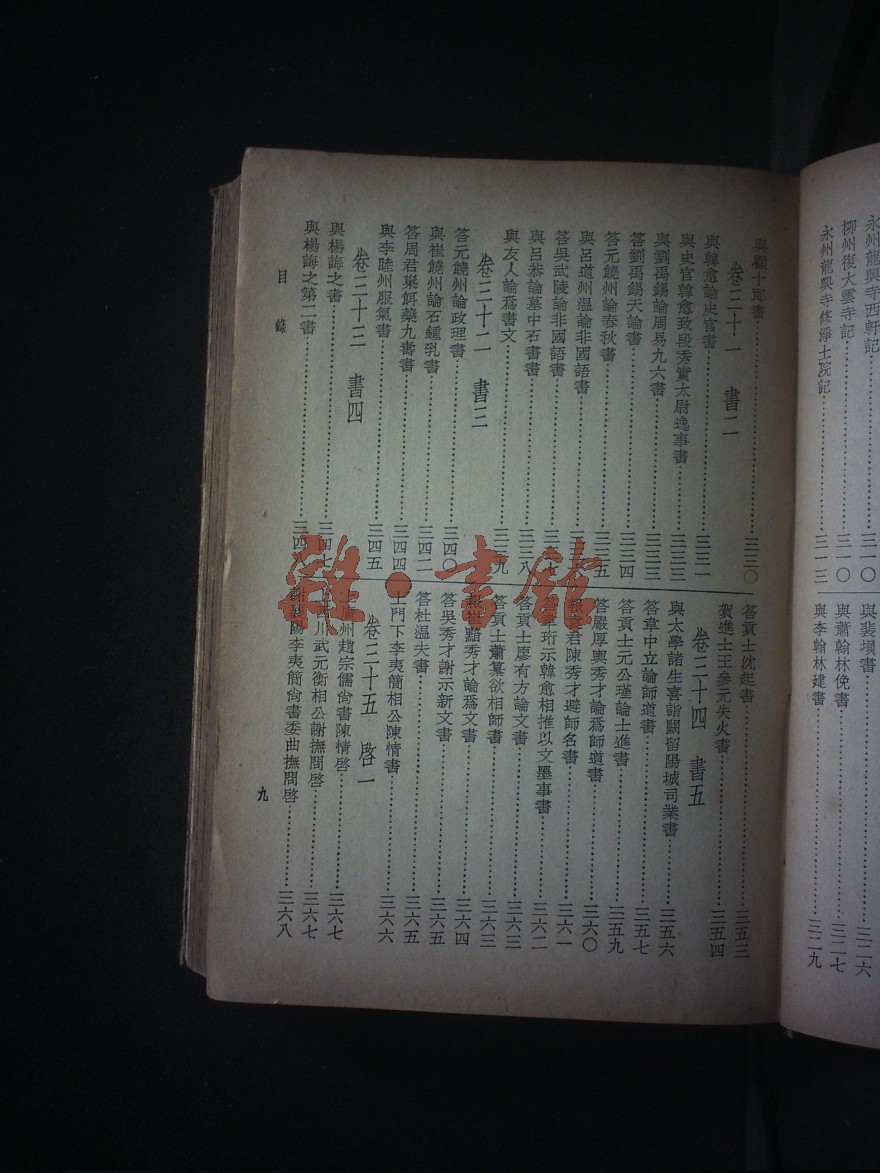 永州龍興寺西軒記……三一〇
柳州復大雲寺記……三一〇
永州龍興寺修淨土院記……三一三
與裴塤書……三二六
與蕭翰林俛書……三二七
與李翰林建書……三二九
與顧十郎書……三三〇
卷三十一 書二
與韓愈論史官書……三三一
與史官韓愈致段秀實太尉逸事書……三三二
與劉禹錫論周易九六書……三三三
答劉禹錫天論書……三三四
答元饒州論春秋書……三三五
與呂道州溫論非國語書
答吳武陵論非國語書……三三七
與呂恭論墓中石書書……三三八
與友人論爲書文……三三九
卷三十二 書三
答元饒州論政理書……三四〇
與崔饒州論石鍾乳書……三四二
答周君巢餌藥久壽書……三四四
與李睦州服氣書……三四五
卷三十三 書四
與楊誨之書……三四七
與楊誨之第二書……三四八
答貢士沈起書……三五三
賀進士王參元失火書……三五四
卷三十四 書五
與太學諸生喜詣闕留陽城司業書……三五六
答韋中立論師道書……三五七
答貢士元公瑾論士進書……三五九
答嚴厚輿秀才論爲師道書……三六〇
報袁君陳秀才避師名書……三六一
答韋珩示韓愈相推以文墨事書……三六二
答貢士廖有方論文書……三六三
答貢士蕭纂欲相師書……三六三
報崔黯秀才論爲文書……三六四
答吳秀才謝示新文書……三六五
答杜溫夫書……三六五
上門下李夷簡相公陳情書……三六六
卷三十五 啓一
上廣州趙宗儒尙書陳情啓……三六七
上西川武元衡相公謝撫問啓……三六七
謝襄陽李夷簡尙書委曲撫問啓……三六八
目錄
九
雜·書館